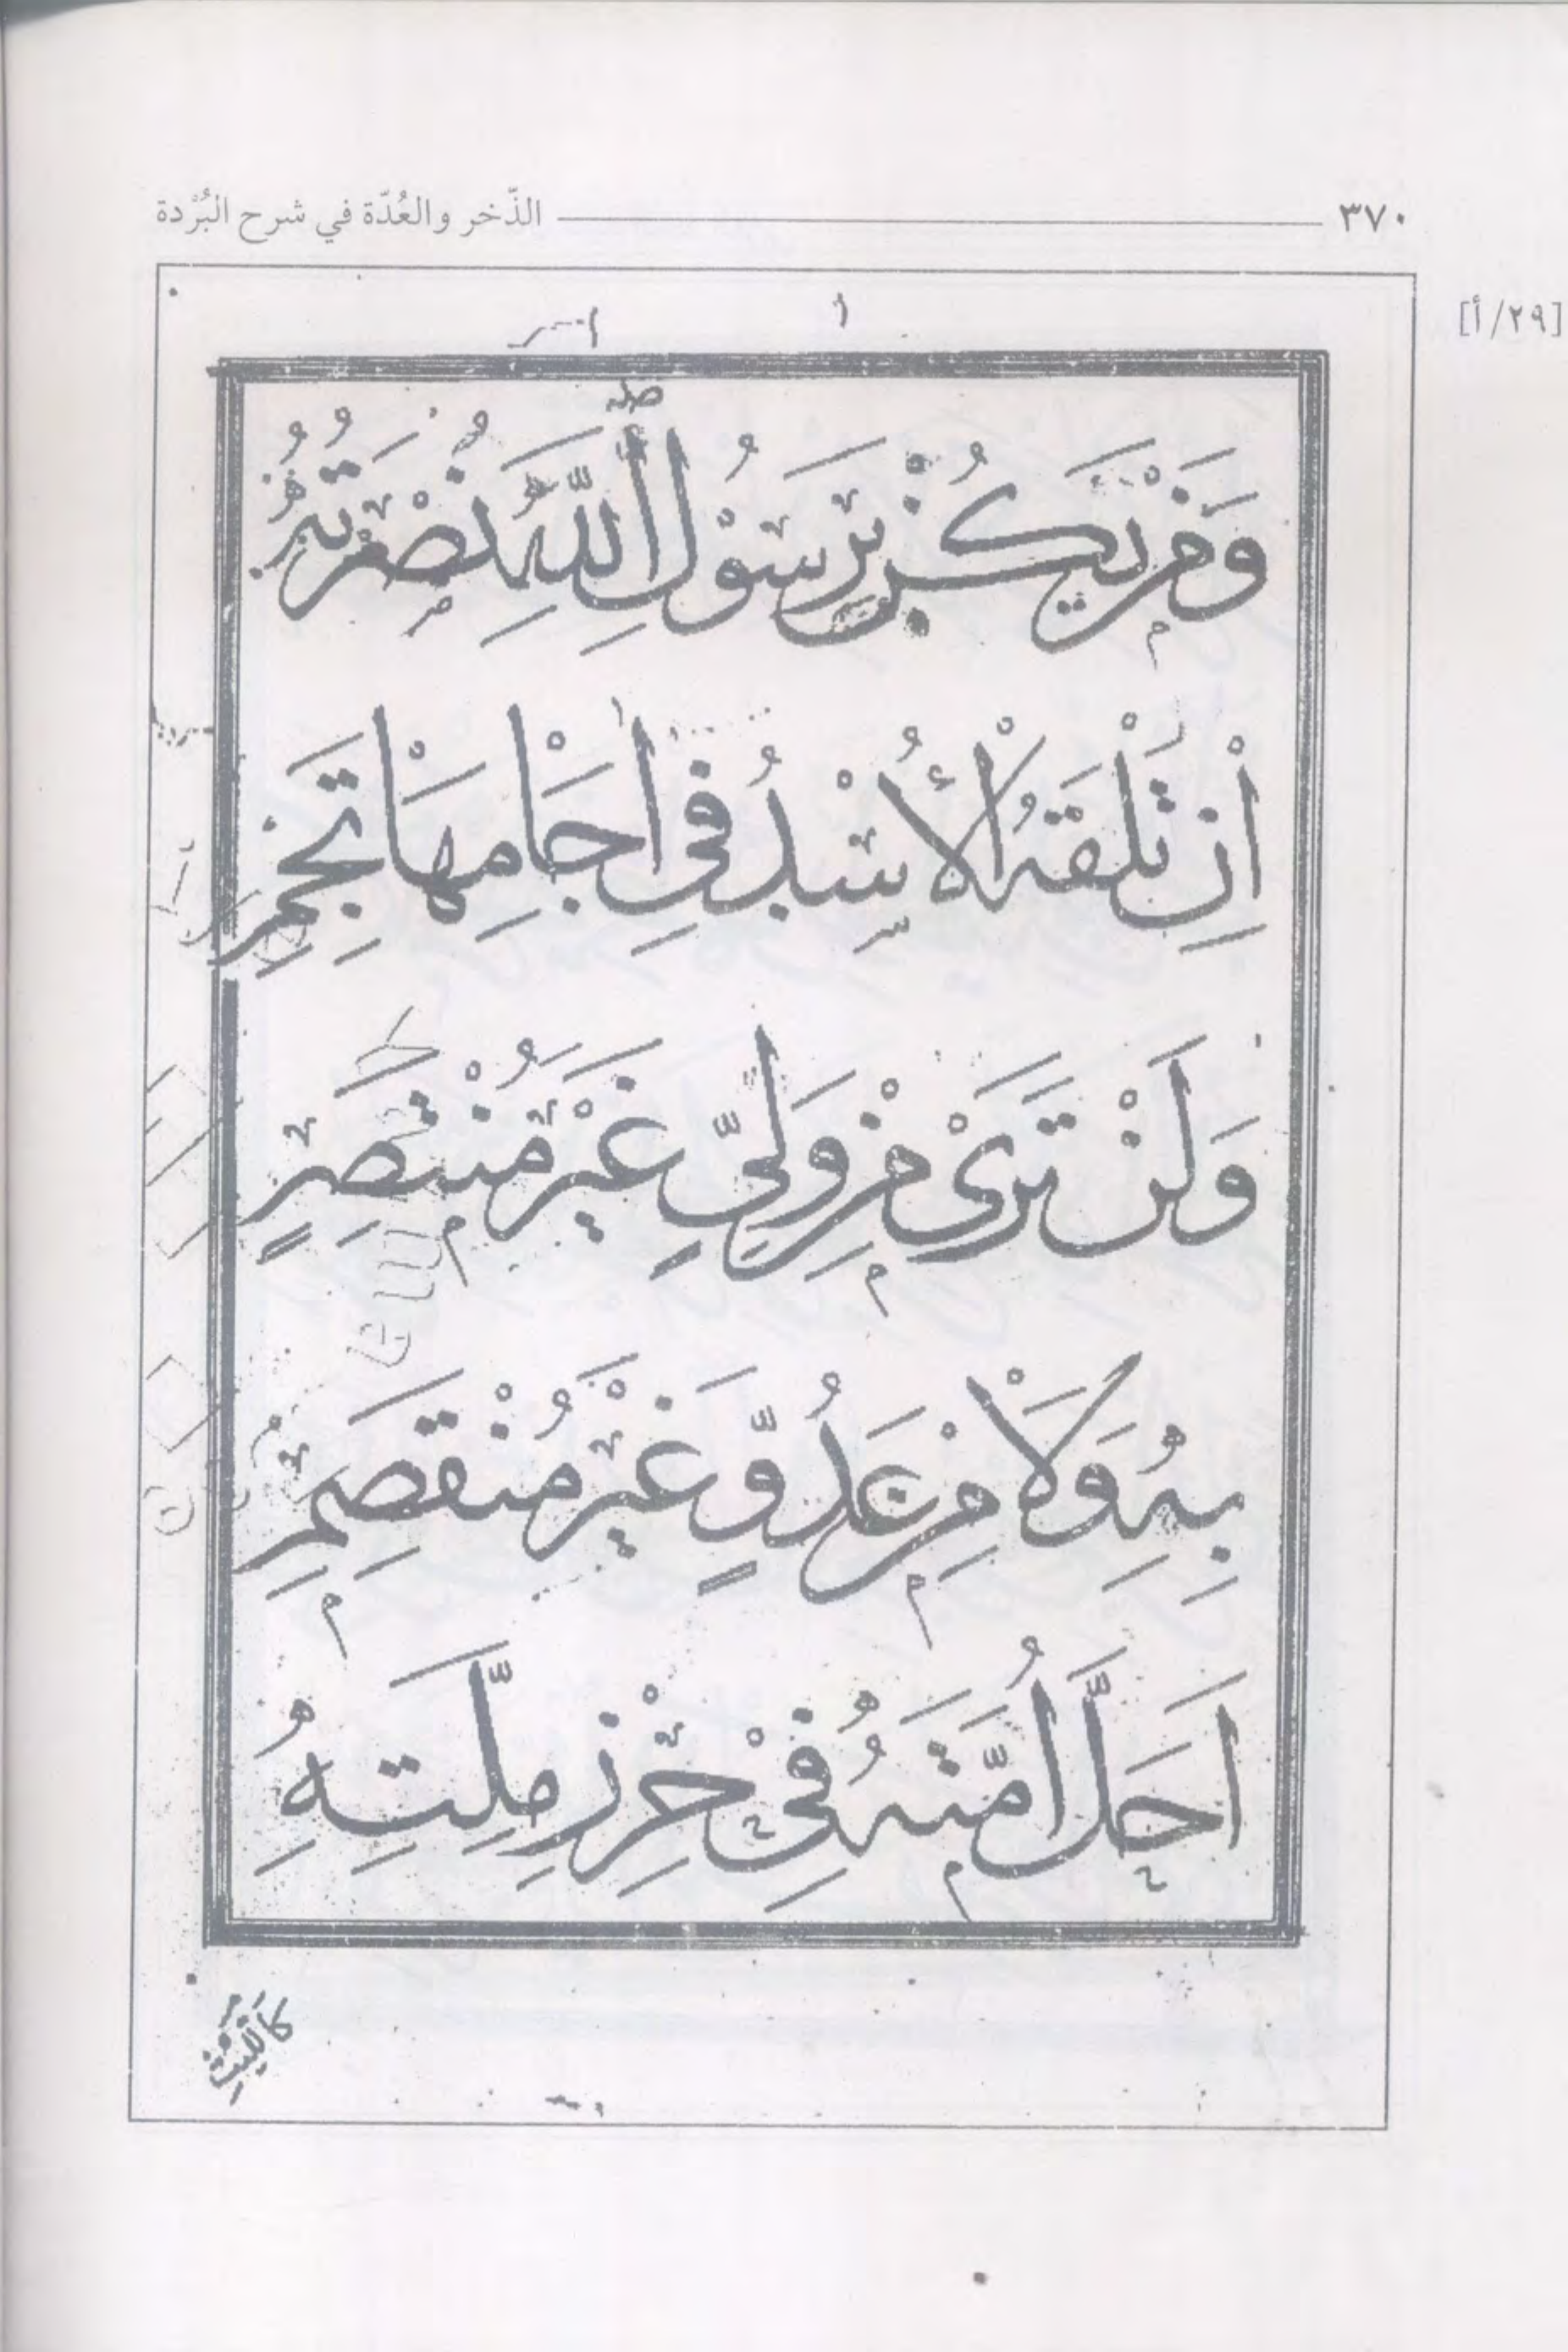 ٣٧٠ الذّخر والعُدّة في شرح البُرْدة
[٢٩/أ]
وَمَنْ يَكُنْ بِرَسُوْلِ اللّٰهِ نُصْرَتُهُ
اِنْ تَلْقَهُ الْأُسْدُ فِى اٰجَامِهَا تَجِمِ
وَلَنْ تَرٰى مِنْ وَلِيٍّ غَيْرَ مُنْتَصِرٍ
بِهِ وَلَا مِنْ عَدُوٍّ غَيْرَ مُنْقَصِمِ
اَحَلَّ اُمَّتَهُ فِىْ حِرْزِ مِلَّتِهِ
كَاللَّيْثِ